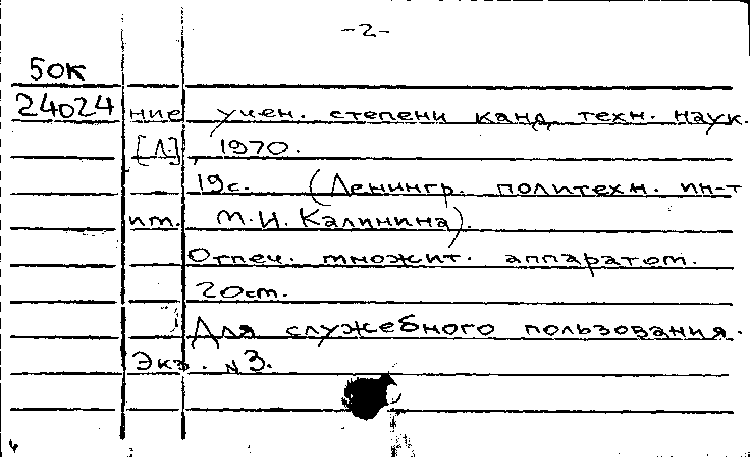 -2-
50К
24024 ние учен. степени канд. техн. наук.
[Л.], 1970.
19с. (Ленингр. политехн. ин-т
им. М.И. Калинина).
Отпеч. множит. аппаратом.
20см.
Для служебного пользования.
Экз. N3.